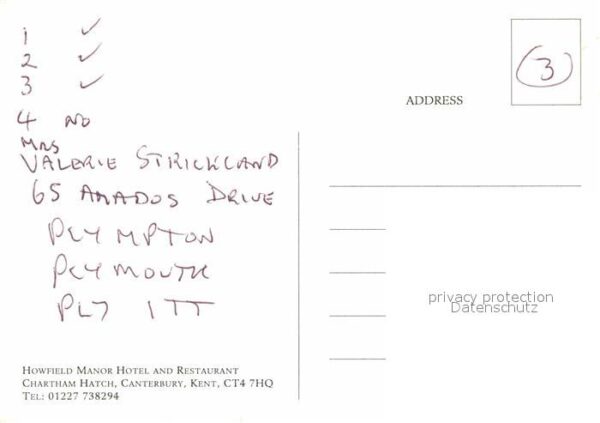 1 ✓
2 ✓
3 ✓
4 NO
MRS
VALERIE STRICKLAND
65 AMADOS DRIVE
PLYMPTON
PLYMOUTH
PL7 1TT
HOWFIELD MANOR HOTEL AND RESTAURANT
CHARTHAM HATCH, CANTERBURY, KENT, CT4 7HQ
TEL: 01227 738294
ADDRESS
3
privacy protection
Datenschutz